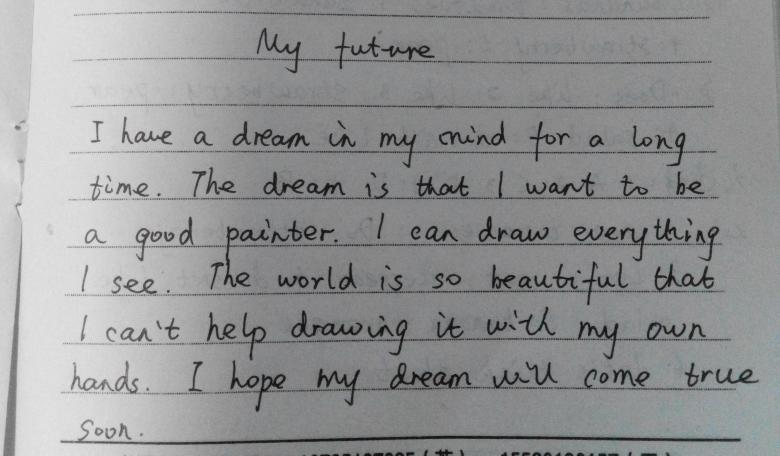 My future
I have a dream in my mind for a long
time. The dream is that I want to be
a good painter. I can draw everything
I see. The world is so beautiful that
I can't help drawing it with my own
hands. I hope my dream will come true
soon.